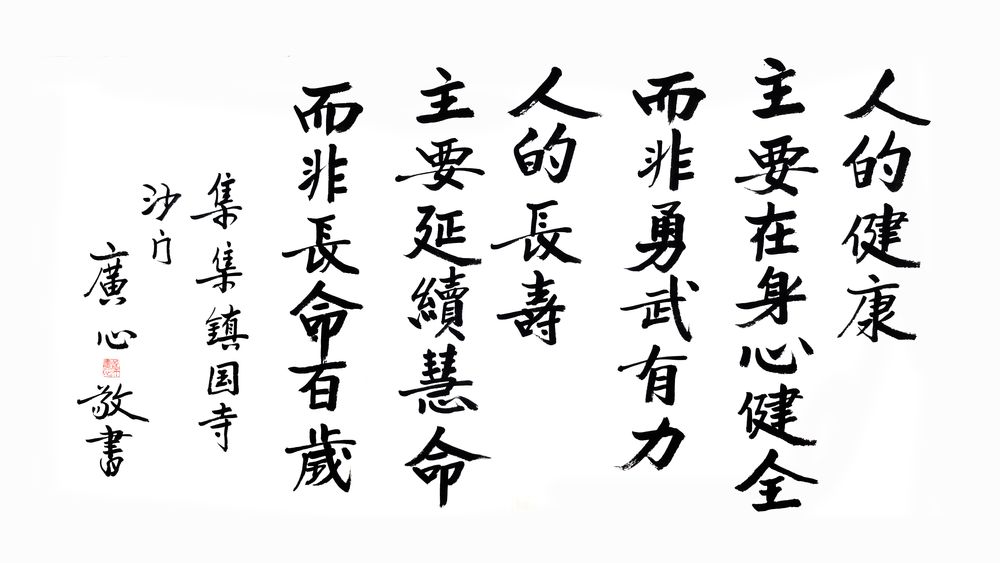 人的健康
主要在身心健全
而非勇武有力
人的長壽
主要延續慧命
而非長命百歲
集集鎮国寺
沙门
廣心敬書